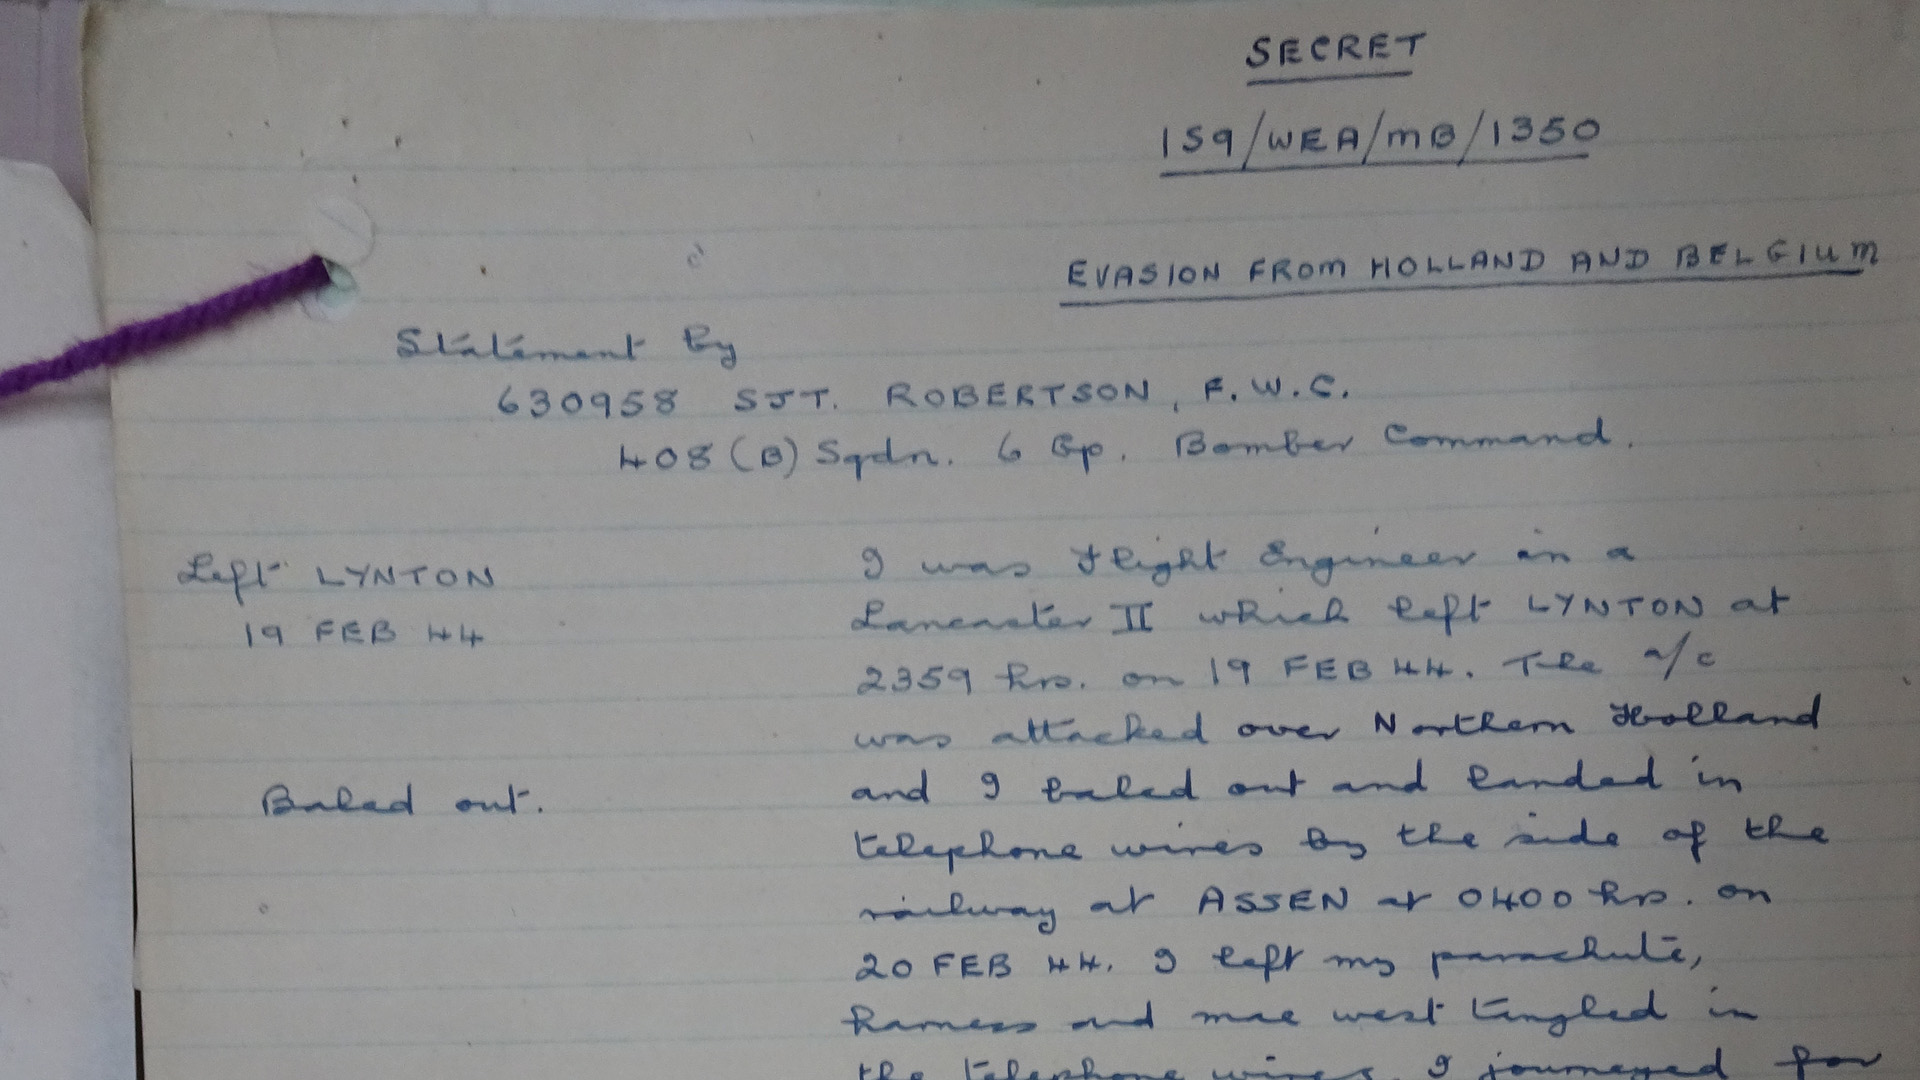 SECRET
IS9/WEA/MB/1350
EVASION FROM HOLLAND AND BELGIUM
Statement by
630958 SJT. ROBERTSON, F.W.C.
408 (B) Sqdn. 6 Gp. Bomber Command.
Left LYNTON
19 FEB 44
I was Flight Engineer in a
Lancaster II which left LYNTON at
2359 hrs. on 19 FEB 44. The a/c
was attacked over Northern Holland
Baled out.
and I baled out and landed in
telephone wires by the side of the
railway at ASSEN at 0400 hrs. on
20 FEB 44. I left my parachute,
harness and mae west tangled in
the telephone wires. I journeyed for